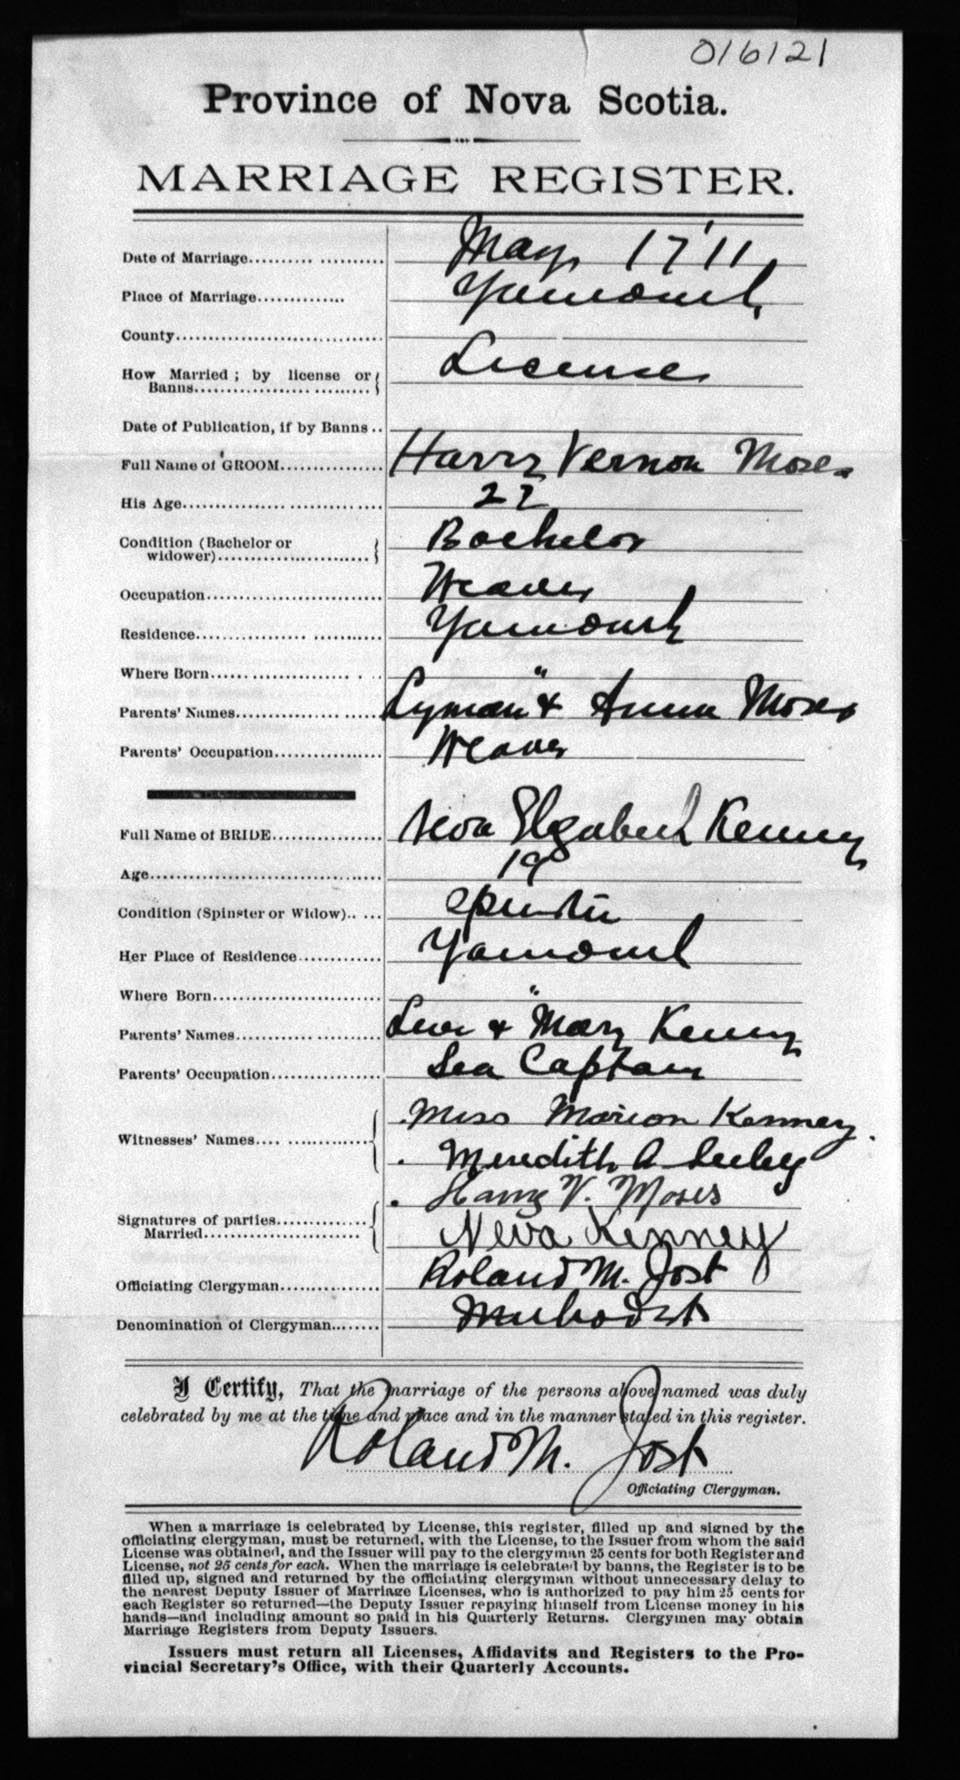 016121
Province of Nova Scotia.
MARRIAGE REGISTER.
Date of Marriage.................... May 17 '11
Place of Marriage.............. Yarmouth
County.................................
How Married ; by license or License
Banns.......................
Date of Publication, if by Banns ..
Full Name of GROOM............... Harry Vernon Moses
His Age................................. 22
Condition (Bachelor or Bachelor
widower)........................
Occupation............................. Weaver
Residence............................ Yarmouth
Where Born...................... "
Parents' Names..................... Lyman & Anna Moses
Parents' Occupation................ Weaver
Full Name of BRIDE............... Neva Elizabeth Kenney
Age..................................... 19
Condition (Spinster or Widow).. ... Spinster
Her Place of Residence............ Yarmouth
Where Born......................... "
Parents' Names..................... & Mary Kenney
Parents' Occupation................ Sea Captain
Miss Marion Kenney.
Witnesses' Names.... ..............
Meredith A
Harry V. Moses
Signatures of parties..............
Married........................ Neva Kenney
Officiating Clergyman............... Roland M. Jost
Denomination of Clergyman........ Methodist
I Certify, That the marriage of the persons above named was duly
celebrated by me at the time and place and in the manner stated in this register.
Roland M. Jost
Officiating Clergyman.
When a marriage is celebrated by License, this register, filled up and signed by the
officiating clergyman, must be returned, with the License, to the Issuer from whom the said
License was obtained, and the Issuer will pay to the clergyman 25 cents for both Register and
License, not 25 cents for each. When the marriage is celebrated by banns, the Register is to be
filled up, signed and returned by the officiating clergyman without unnecessary delay to
the nearest Deputy Issuer of Marriage Licenses, who is authorized to pay him 25 cents for
each Register so returned—the Deputy Issuer repaying himself from License money in his
hands—and including amount so paid in his Quarterly Returns. Clergymen may obtain
Marriage Registers from Deputy Issuers.
Issuers must return all Licenses, Affidavits and Registers to the Pro-
vincial Secretary's Office, with their Quarterly Accounts.